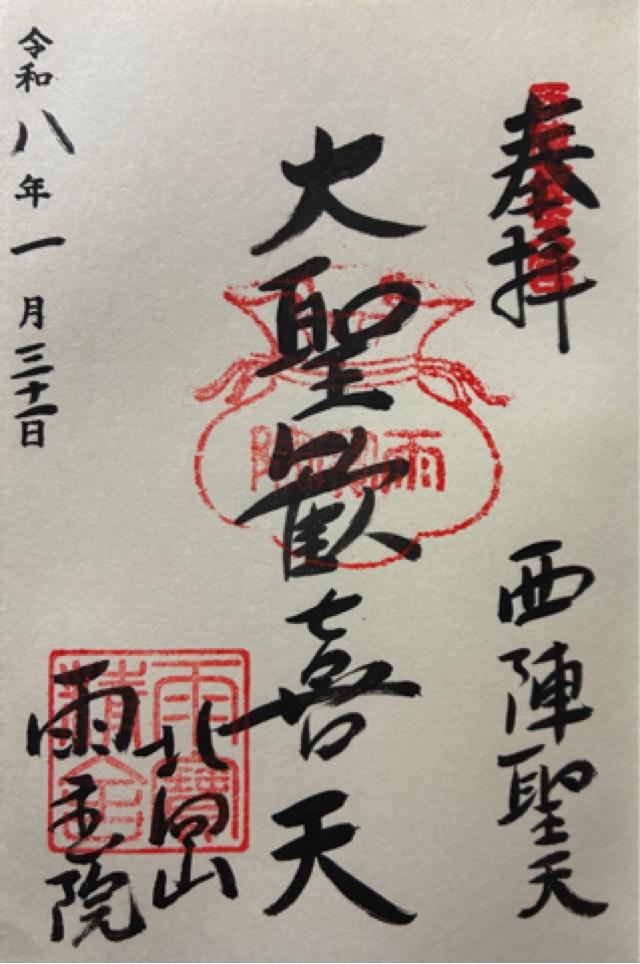 奉拝
西陣聖天
大聖歓喜天
雨
北向山
雨宝院
雨寶
令和八年一月三十一日